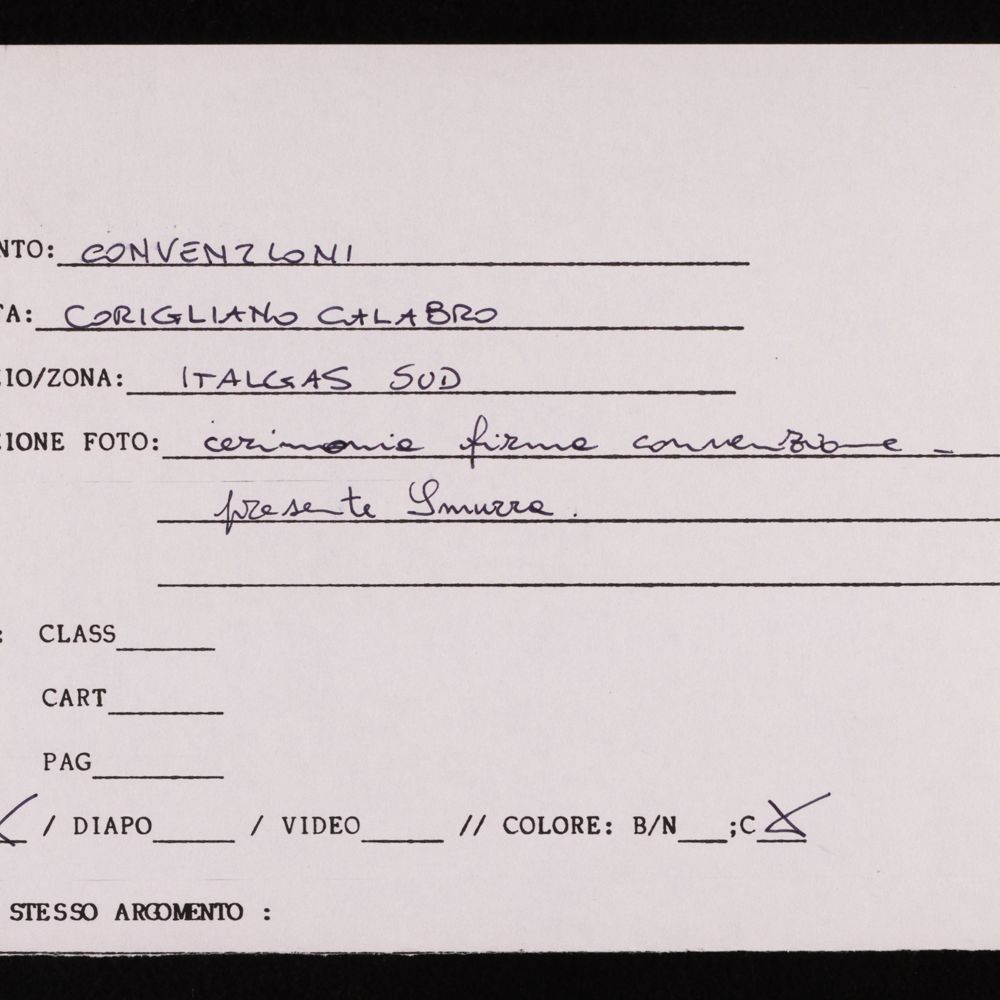 NTO: CONVENZIONI
TA: CORIGLIANO CALABRO
ZIO/ZONA: ITALGAS SUD
ZIONE FOTO: cerimonia firma convenzione -
presente Smurra.
: CLASS
CART
PAG
/ DIAPO / VIDEO // COLORE: B/N ;C X
STESSO ARGOMENTO :